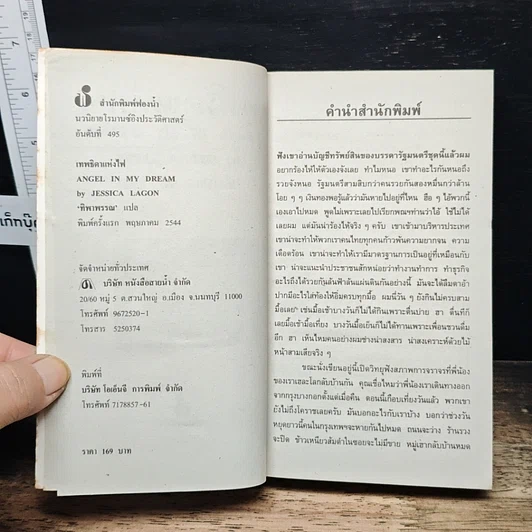 สำนักพิมพ์ฟองน้ำ
นวนิยายโรมานซ์อิงประวัติศาสตร์
อันดับที่ 495
เทพธิดาแห่งไฟ
ANGEL IN MY DREAM
by JESSICA LAGON
'ทิพาพรรณ' แปล
พิมพ์ครั้งแรก พฤษภาคม 2544
จัดจำหน่ายทั่วประเทศ
บริษัท หนังสือสายน้ำ จำกัด
20/60 หมู่ 5 ต.สวนใหญ่ อ.เมือง จ.นนทบุรี 11000
โทรศัพท์ 9672520-1
โทรสาร 5250374
พิมพ์ที่
บริษัท โอเอ็นจี การพิมพ์ จำกัด
โทรศัพท์ 7178857-61
ราคา 169 บาท
คำนำสำนักพิมพ์
ฟังเขาอ่านบัญชีทรัพย์สินของบรรดารัฐมนตรีชุดนี้แล้วผม
อยากร้องไห้ให้ตัวเองจังเลย ทำไมหนอ เขาทำอะไรกันหนอถึง
รวยจังหนอ รัฐมนตรีสามสิบกว่าคนรวยกันสองหมื่นกว่าล้าน
โอย ๆ ๆ เงินทองพอรู้แล้วว่ามันหายไปอยู่ที่ไหน ฮือ ๆ ไอ้พวกนี้
เองเอาไปหมด พูดไม่เพราะเลยไปเรียกพณฯท่านว่าไอ้ ใช้ไม่ได้
เลยผม แต่มันน่าร้องไห้จริง ๆ ครับ เขาเข้ามาบริหารประเทศ
เขาน่าจะทำให้พวกเราคนไทยทุกคนก้าวพ้นความยากจน ความ
เดือดร้อน เขาน่าจะทำให้เรามีมาตรฐานการเป็นอยู่ที่เหมือนกับ
เขา น่าจะแนะนำประชาชนสักหน่อยว่าทำงานทำการ ทำธุรกิจ
อะไรถึงได้รวยล้นฟ้าล้นแผ่นดินกันอย่างนี้ มันจะได้ลืมตาอ้า
ปากมีอะไรใส่ท้องให้อิ่มครบทุกมื้อ ผมนี่วัน ๆ ยังกินไม่ครบสาม
มื้อเลยฯ เช่นมื้อเช้าบางวันก็ไม่ได้กินเพราะตื่นบ่าย ฮา ตื่นทีก็
เลยมื้อเช้ามื้อเที่ยง บางวันมื้อเย็นก็ไม่ได้ทานเพราะเพื่อนชวนดื่ม
อีก ฮา เห็นไหมคนอย่างผมช่างน่าสงสาร น่าสงเคราะห์ด้วยไม้
หน้าสามเสียจริง ๆ
ขณะนั่งเขียนอยู่นี้เปิดวิทยุฟังสภาพการจราจรที่พี่น้อง
ของเราเฮละโลกลับบ้านกัน คุณเชื่อไหมว่าพี่น้องเราเดินทางออก
จากกรุงบางกอกตั้งแต่เมื่อคืน ตอนนี้เกือบเที่ยงวันแล้ว พวกเขา
ยังไม่ถึงโคราชเลยครับ มันบอกอะไรกับเราบ้าง บอกว่าช่วงวัน
หยุดยาวนี้คนในกรุงเทพฯจะหายกันไปหมด ถนนจะว่าง ร้านรวง
จะปิด ข้าวเหนียวส้มตำในซอยจะไม่มีขาย หมู่เฮากลับบ้านหมด